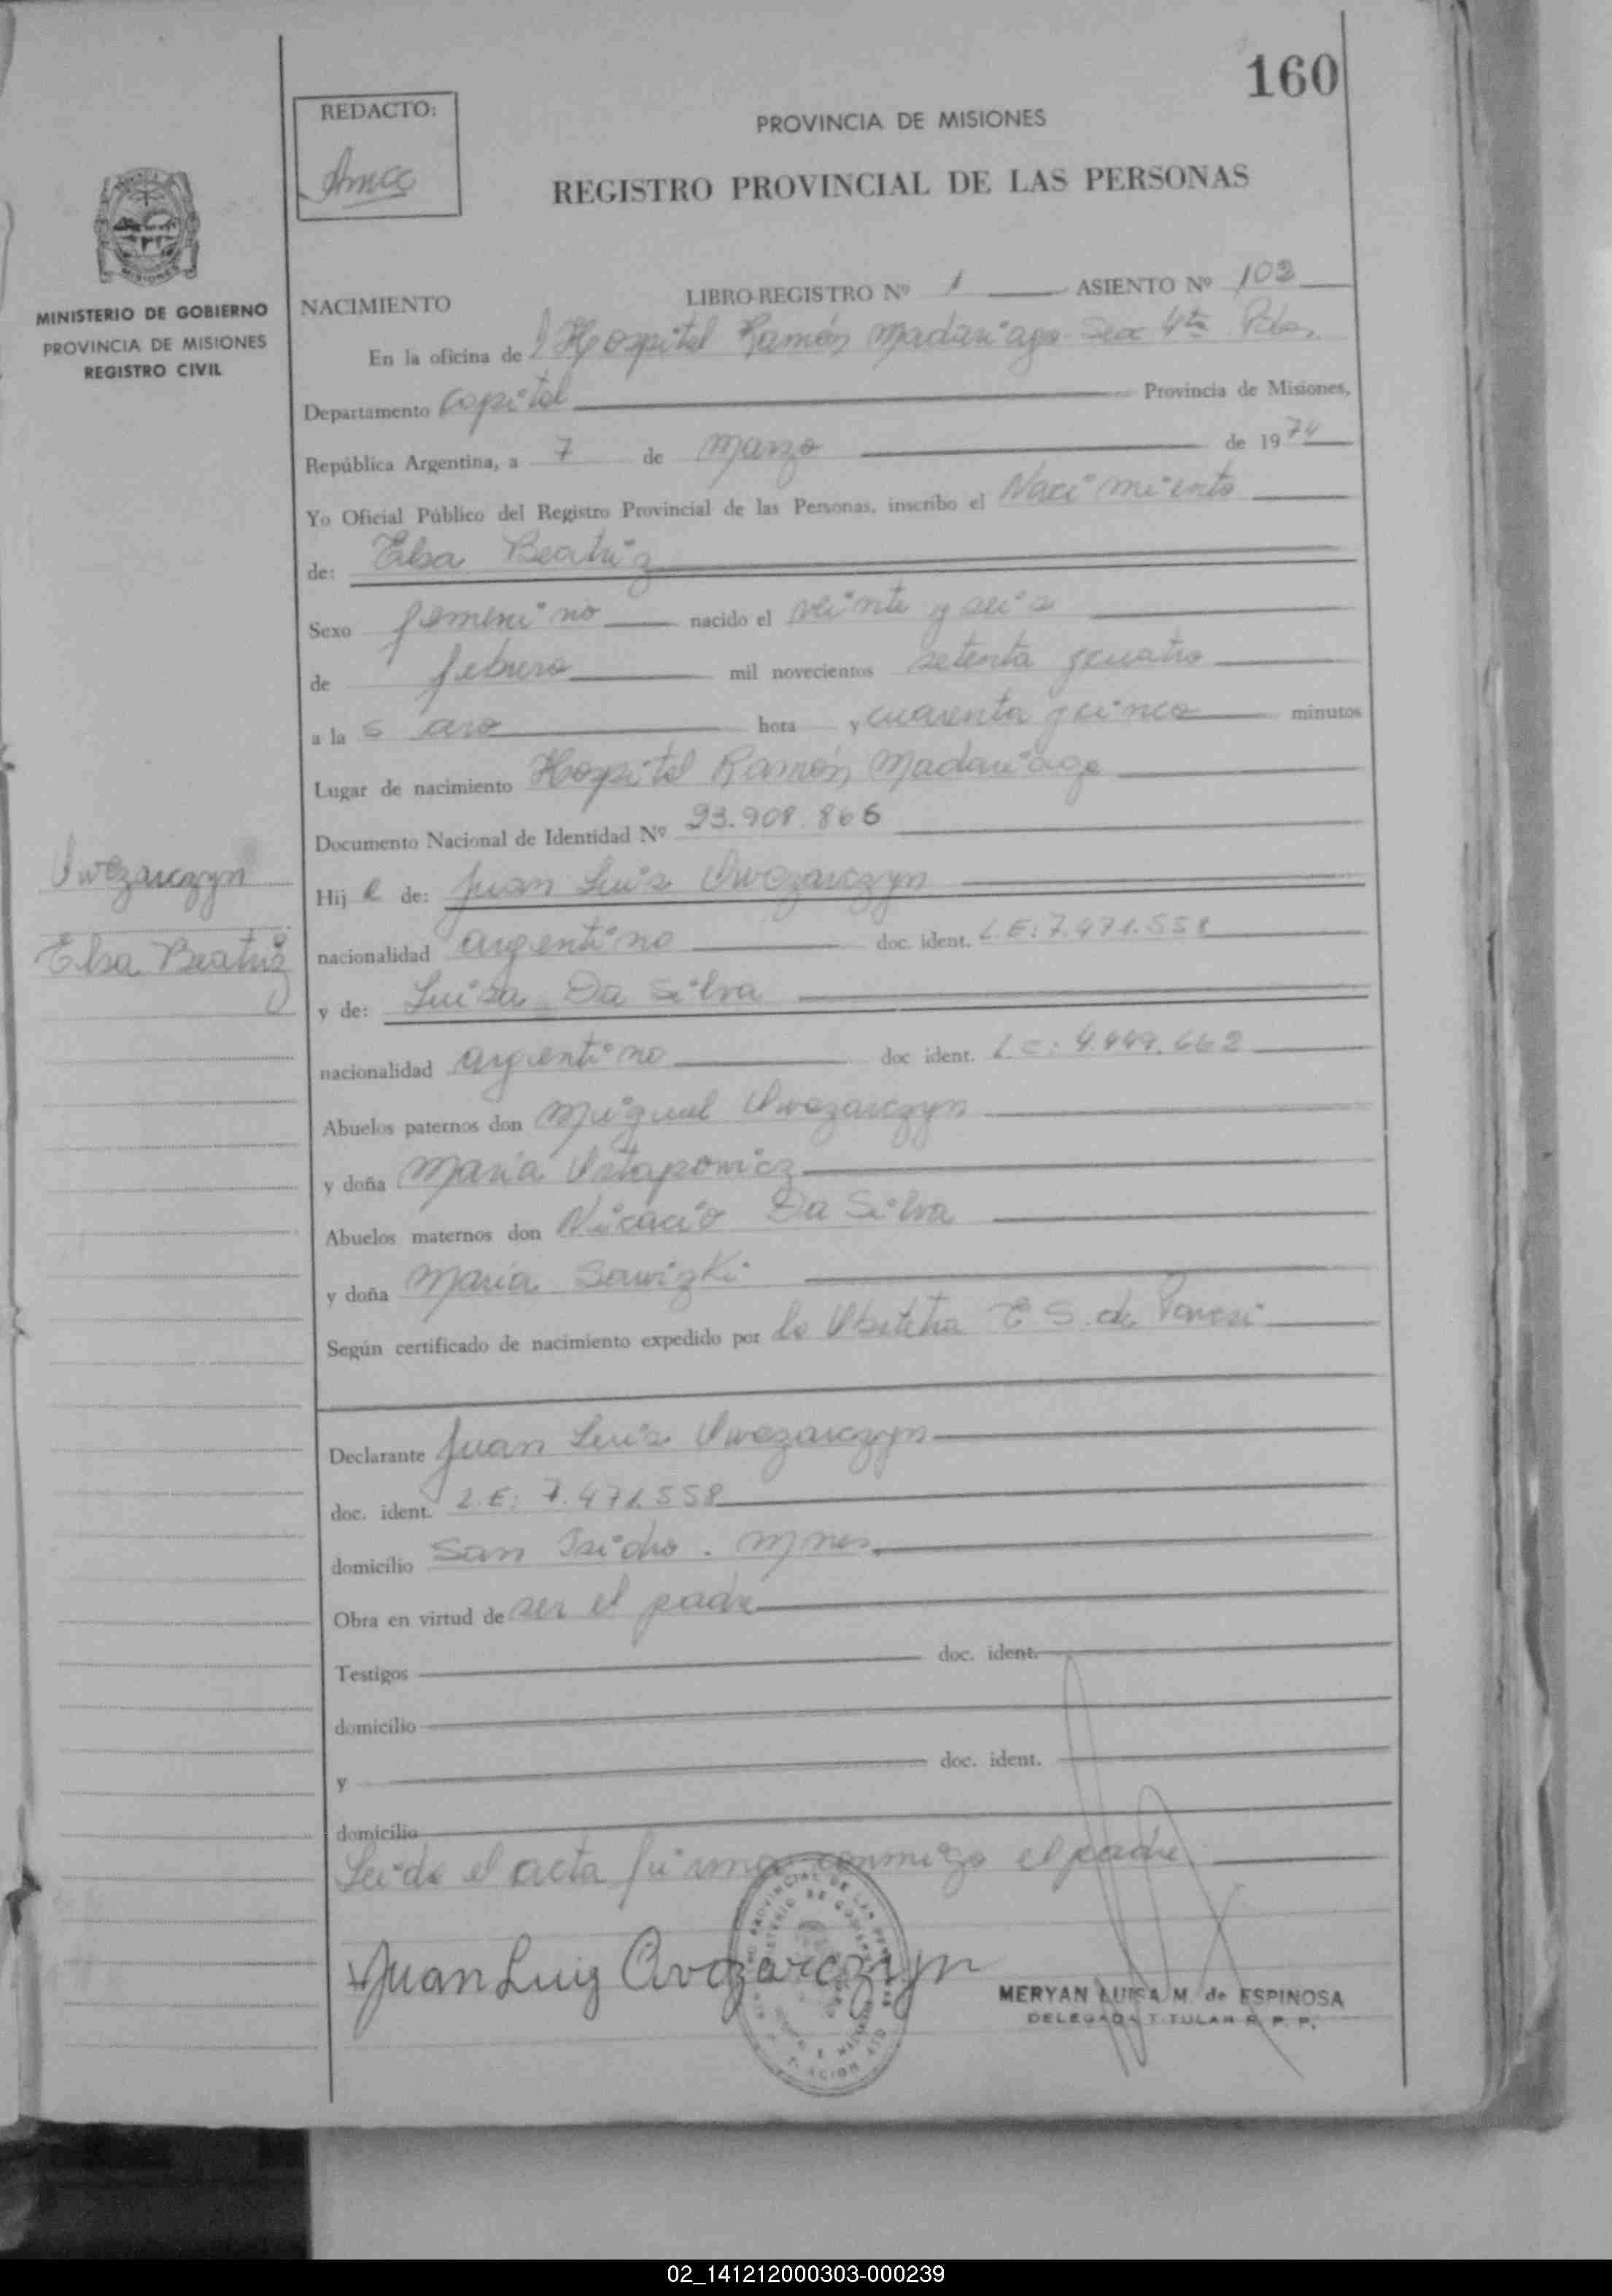 160
REDACTO:
PROVINCIA DE MISIONES
REGISTRO PROVINCIAL DE LAS PERSONAS
MINISTERIO DE GOBIERNO
PROVINCIA DE MISIONES
REGISTRO CIVIL
NACIMIENTO LIBRO-REGISTRO Nº 1 ASIENTO Nº 102
En la oficina de l Hospital Ramón Madariaga Sec 4ta Pdas.
Departamento Capital Provincia de Misiones,
República Argentina, a 7 de Marzo de 1974
Yo Oficial Público del Registro Provincial de las Personas, inscribo el Nacimiento
de: Elsa Beatriz
Sexo femenino nacido el veinte y seis
de febrero mil novecientos setenta y cuatro
a la s hora y cuarenta y cinco minutos
Lugar de nacimiento Hospital Ramón Madariaga
Documento Nacional de Identidad Nº 23.908.866
Owozarczyn
Elsa Beatriz
Hij a de: Juan Luis Owozarczyn
nacionalidad argentino doc. ident. L.E: 7.471.558
y de: Luisa Da Silva
nacionalidad argentino doc ident. L.C: 4.449.662
Abuelos paternos don Miguel Owozarczyn
y doña Maria Ostapowicz
Abuelos maternos don Nicacio Da Silva
y doña Maria Sawizki
Según certificado de nacimiento expedido por la Obstetra E S. de
Declarante Juan Luis Owozarczyn
doc. ident. L.E: 7.471.558
domicilio San Isidro. Mnes.
Obra en virtud de ser el padre
Testigos doc. ident.
domicilio
y doc. ident.
domicilio
Leida el acta firma conmigo el padre
Juan Luis Owozarczyn
MERYAN LUISA M. de ESPINOSA
DELEGADA TITULAR R. P. P.
02_141212000303-000239